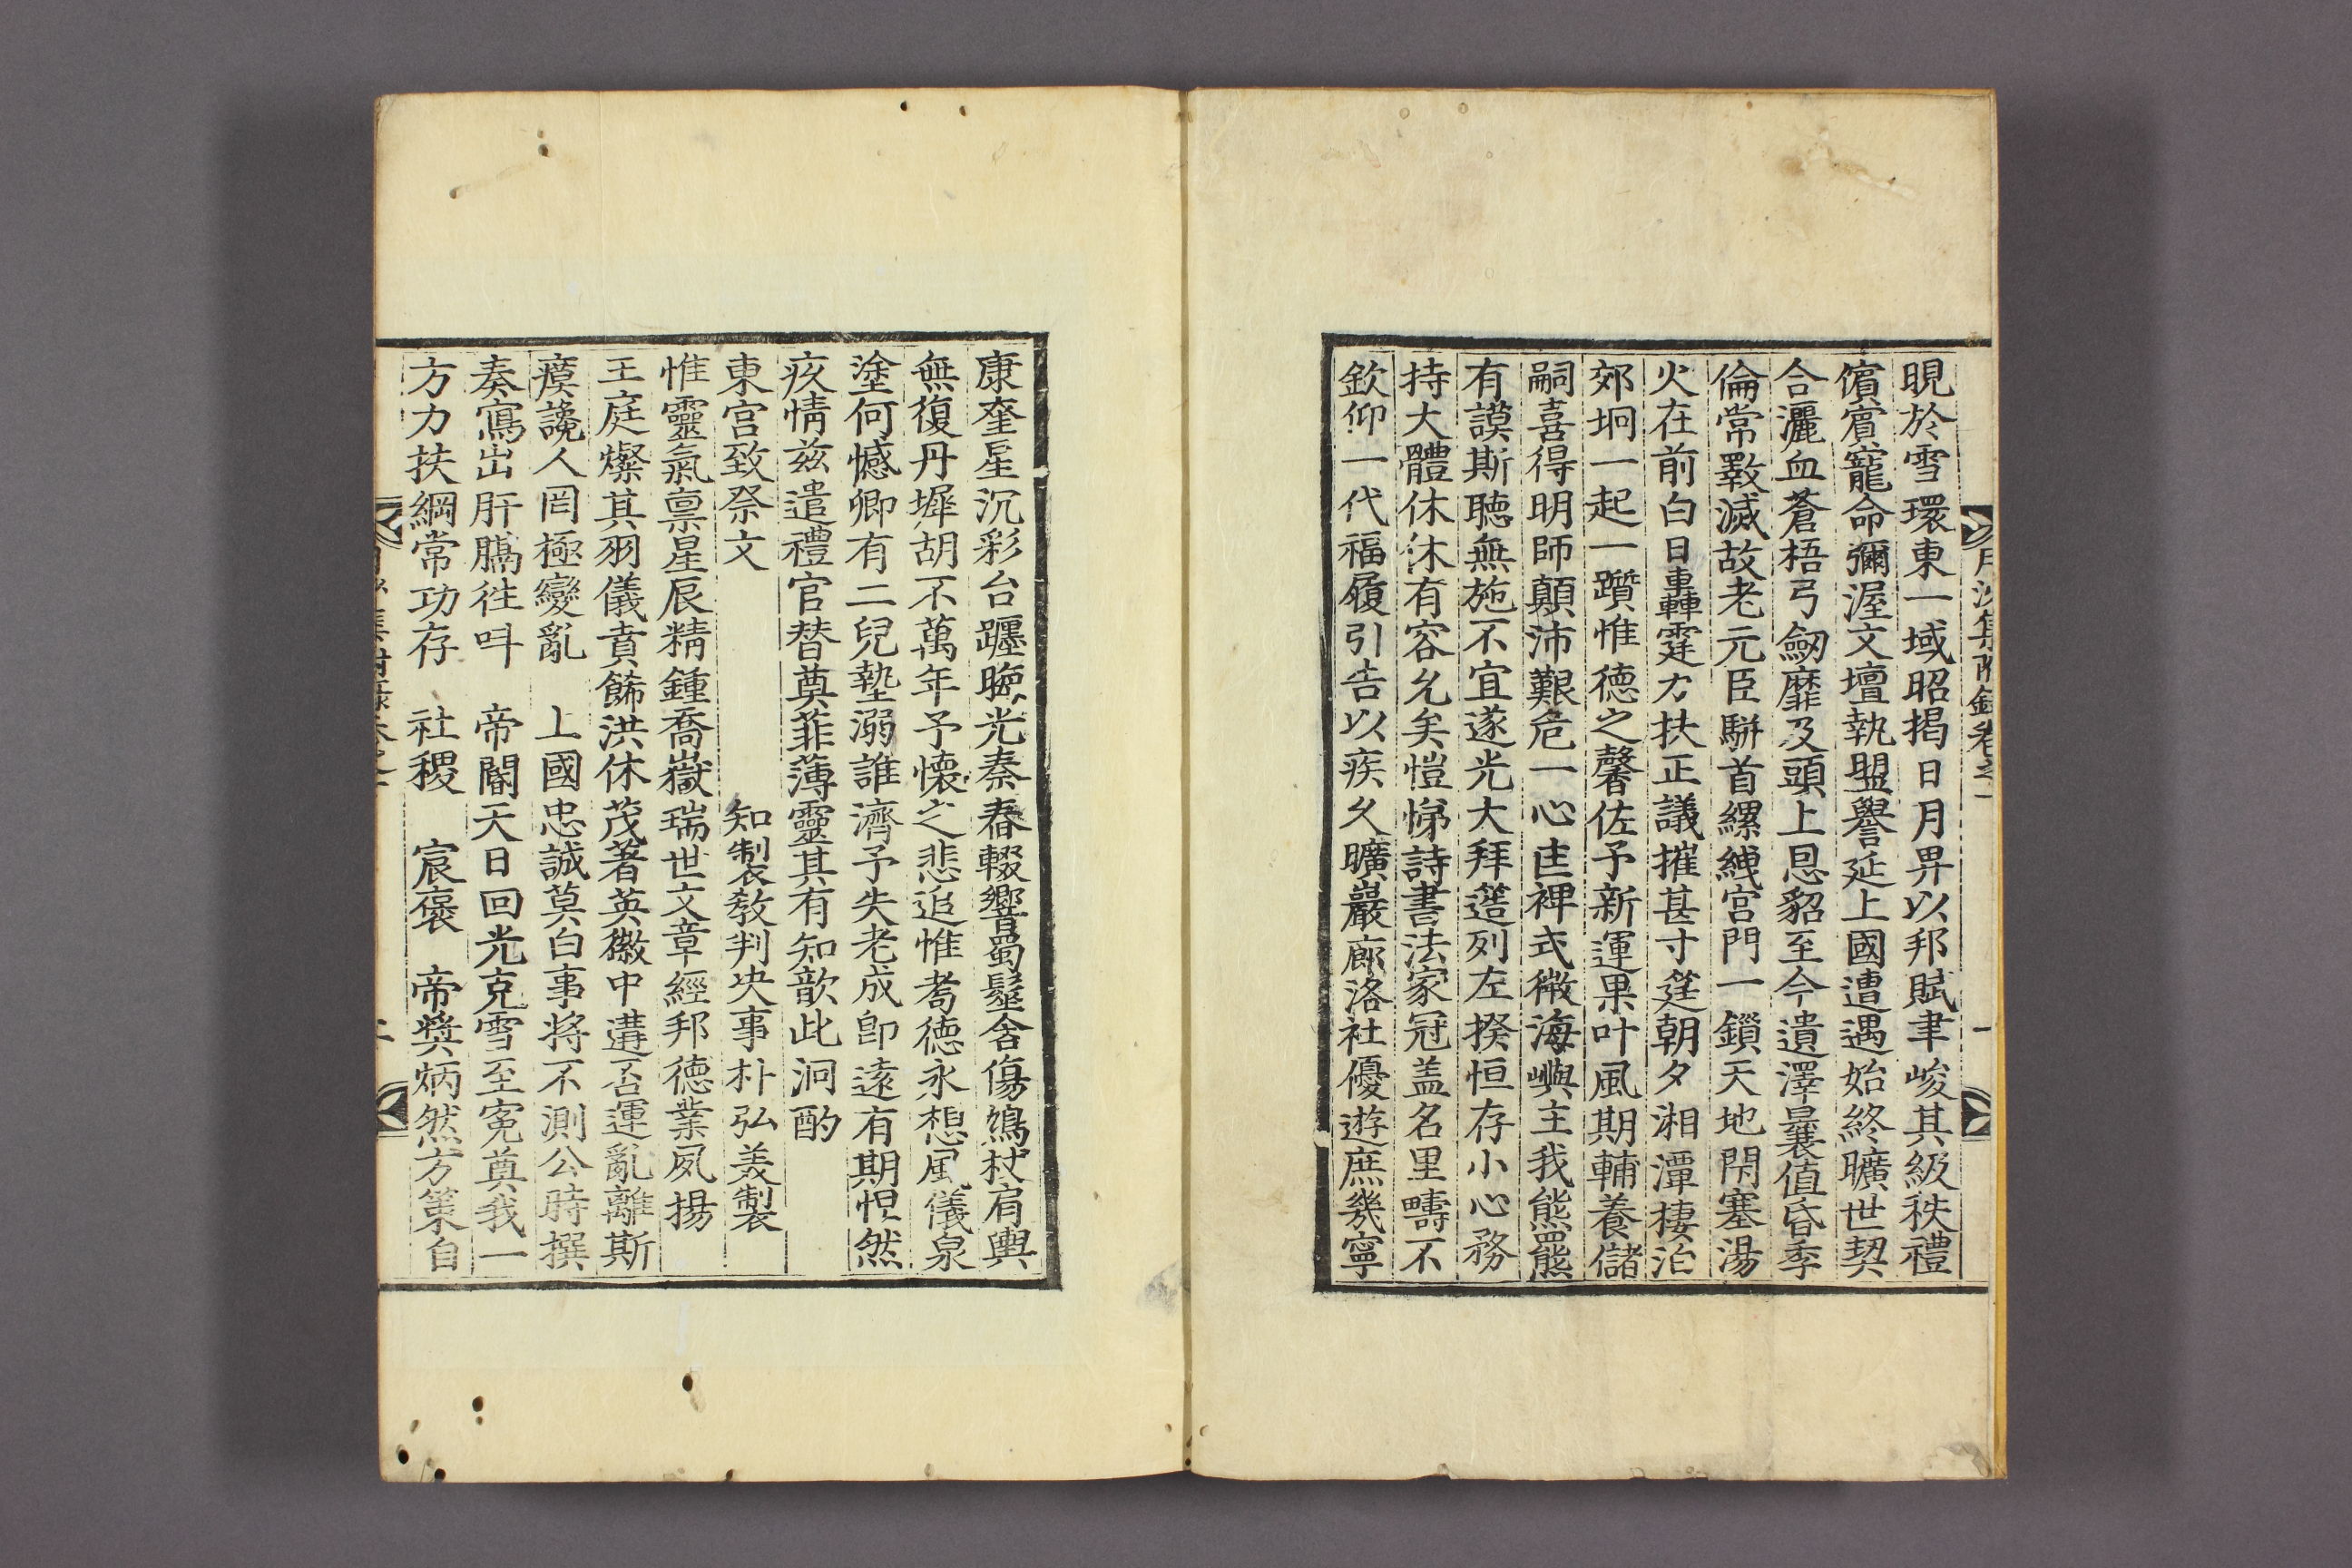 月沙集附錄卷之一
一
晛於雪環東一域昭揭日月畀以邦賦聿峻其級秩禮
儐賓寵命彌渥文壇執盟譽延上國遭遇始終曠世契
合灑血蒼梧弓劒靡及頭上恩貂至今遺澤曩值昏季
倫常斁滅故老元臣騈首縲絏宮門一鎖天地閉塞湯
火在前白日轟霆力扶正議摧甚寸筳朝夕湘潭棲泊
郊坰一起一躓惟德之馨佐予新運果叶風期輔養儲
嗣喜得明師顛沛艱危一心匡裨式微海嶼主我熊羆
有謨斯聽無施不宜遂光大拜簉列左揆恒存小心務
持大體休休有容允矣愷悌詩書法家冠盖名里疇不
欽仰一代福履引告以疾久曠巖廊洛社優遊庶幾寧
康奎星沉彩台躔晦光秦舂輟響蜀髽舍傷鳩杖肩輿
無復丹墀胡不萬年予懷之悲追惟耆德永想風儀泉
塗何憾卿有二兒墊溺誰濟予失老成卽遠有期怛然
疚情兹遣禮官替奠菲薄靈其有知歆此泂酌
東宮致祭文 知製敎判决事朴弘美製
惟靈氣禀星辰精鍾喬嶽瑞世文章經邦德業夙揚
王庭燦其羽儀賁餙洪休茂著英徽中遘否運亂離斯
瘼讒人罔極變亂 上國忠誠莫白事將不測公時撰
奏寫出肝膈徃呌 帝閽天日回光克雪至寃奠我一
方力扶綱常功存 社稷 宸褒 帝奬炳然方策自
月沙集附錄卷之一
二